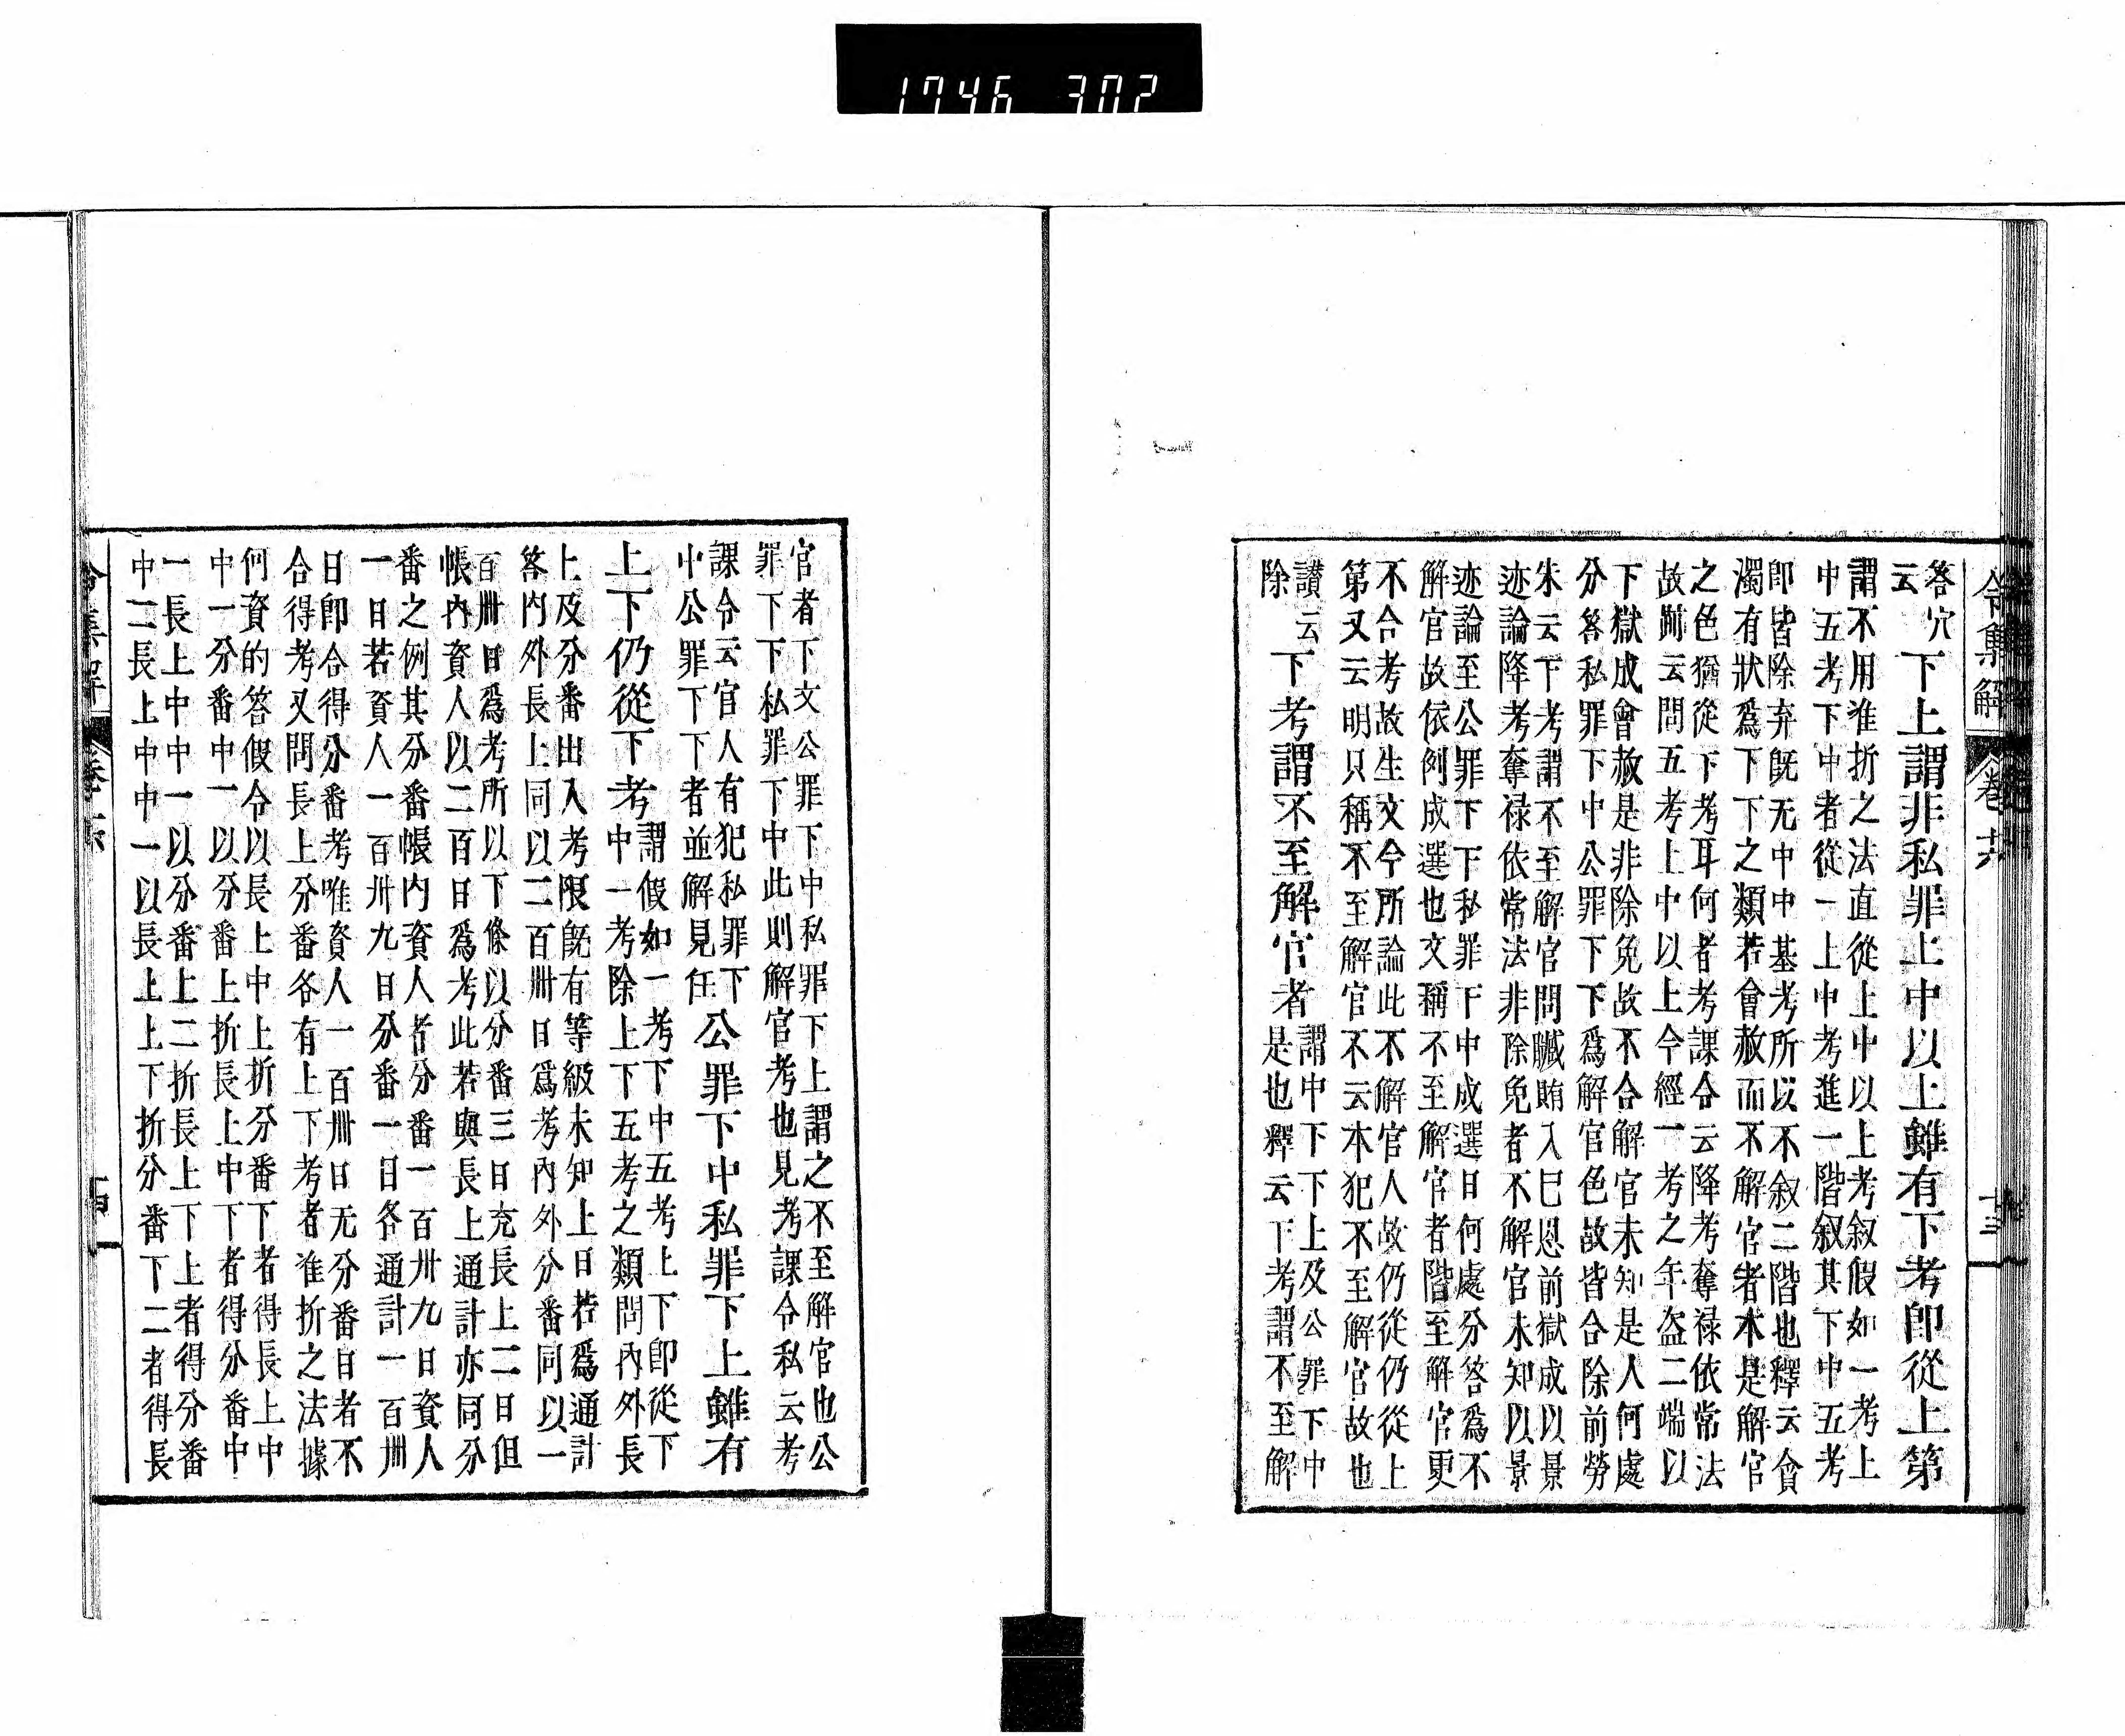 1746 302
令集解 卷十六 十三
答穴
云
下上謂非私罪上中以上雖有下考卽從上第
謂不用准折之法直從上中以上考叙假如一考上
中五考下中者從一上中考進一階叙其下中五考
卽皆除弃旣无中中基考所以不叙二階也釋云會
濁有狀爲下下之類若會赦而不解官者本是解官
之色猶從下考耳何者考課令云降考奪禄依常法
故跡云問五考上中以上今經一考之年盜二端以
下獄成會赦是非除免故不合解官未知是人何處
分答私罪下中公罪下下爲解官色故皆合除前勞
朱云下考謂不至解官問贓賄入巳恩前獄成以景
迹論降考奪禄依常法非除免者不解官未知以景
迹論至公罪下下私罪下中成選日何處分答爲不
解官故依例成選也文稱不至解官者階至解官更
不合考故生文今所論此不解官人故仍從仍從上
第又云明只稱不至解官不云本犯不至解官故也
讃云
除
下考謂不至解官者
謂中下下上及公罪下中
是也釋云下考謂不至解
官者下文公罪下中私罪下上謂之不至解官也公
罪下下私罪下中此則解官考也見考課令私云考
課令云官人有犯私罪下
中公罪下下者並解見任
公罪下中私罪下上雖有
上下仍從下考
謂假如一考下中五考上下卽從下
中一考除上下五考之類問內外長
上及分番出入考限旣有等級未知上日若爲通計
答內外長上同以二百卌日爲考內外分番同以一
百卌日爲考所以下條以分番三日充長上二日但
帳內資人以二百日爲考此若與長上通計亦同分
番之例其分番帳內資人者分番一百卅九日資人
一日若資人一百卅九日分番一日各通計一百卌
日卽合得分番考唯資人一百卌日无分番日者不
合得考又問長上分番各有上下考者准折之法據
何資的答假令以長上中上折分番下者得長上中
中一分番中一以分番上折長上中下者得分番中
一長上中中一以分番上二折長上下上者得分番
中二長上中中一以長上上下折分番下二者得長